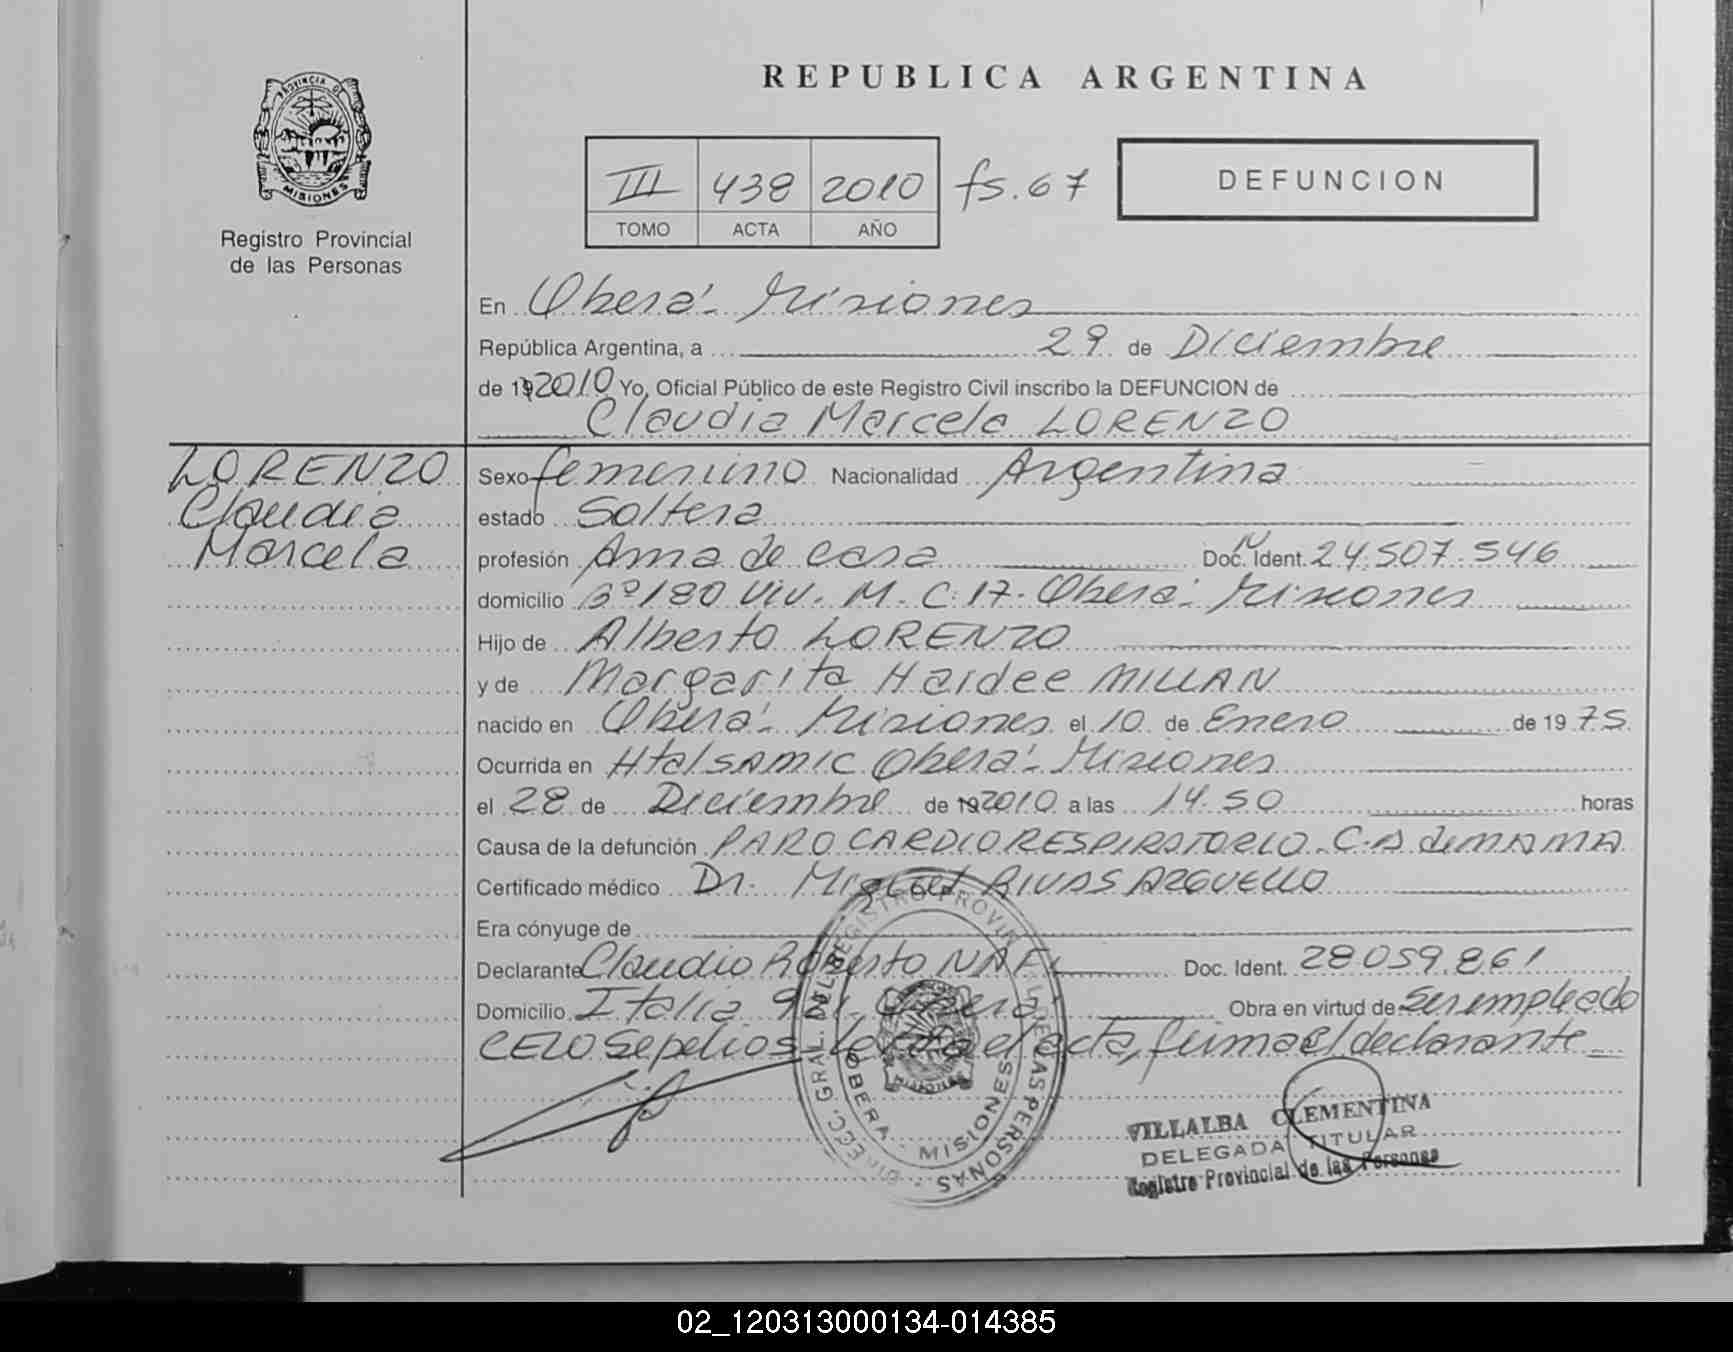 REPUBLICA ARGENTINA
PROVINCIA DE MISIONES
Registro Provincial
de las Personas
III 438 2010 fs. 67
TOMO ACTA AÑO
DEFUNCION
En Oberá - Misiones
República Argentina, a 29 de Diciembre
de 19 2010 Yo, Oficial Público de este Registro Civil inscribo la DEFUNCION de
Claudia Marcela LORENZO
LORENZO
Claudia
Marcela
Sexo femenino Nacionalidad Argentina
estado Soltera
profesión Ama de casa Doc. Ident. 24.507.546
domicilio Bº 180 Viv. M. C. 17. Oberá - Misiones
Hijo de Alberto LORENZO
y de Margarita Haidee MILLAN
nacido en Oberá - Misiones el 10 de Enero de 1975
Ocurrida en Htal SAMIC Oberá - Misiones
el 28 de Diciembre de 19 2010 a las 14.50 horas
Causa de la defunción PARO CARDIORESPIRATORIO. C.A de MAMA
Certificado médico Dr. Miguel RIVAS ARGUELLO
Era cónyuge de
Declarante Claudio Roberto Doc. Ident. 28.059.861
Domicilio Italia Oberá Obra en virtud de Ser empleado
CELO Sepelios el acta, firma el declarante
DIRECC. GRAL. DEL REGISTRO PROVINCIAL DE LAS PERSONAS
OBERA - MISIONES
VILLALBA CLEMENTINA
DELEGADA TITULAR
Registro Provincial de las Personas
02_120313000134-014385